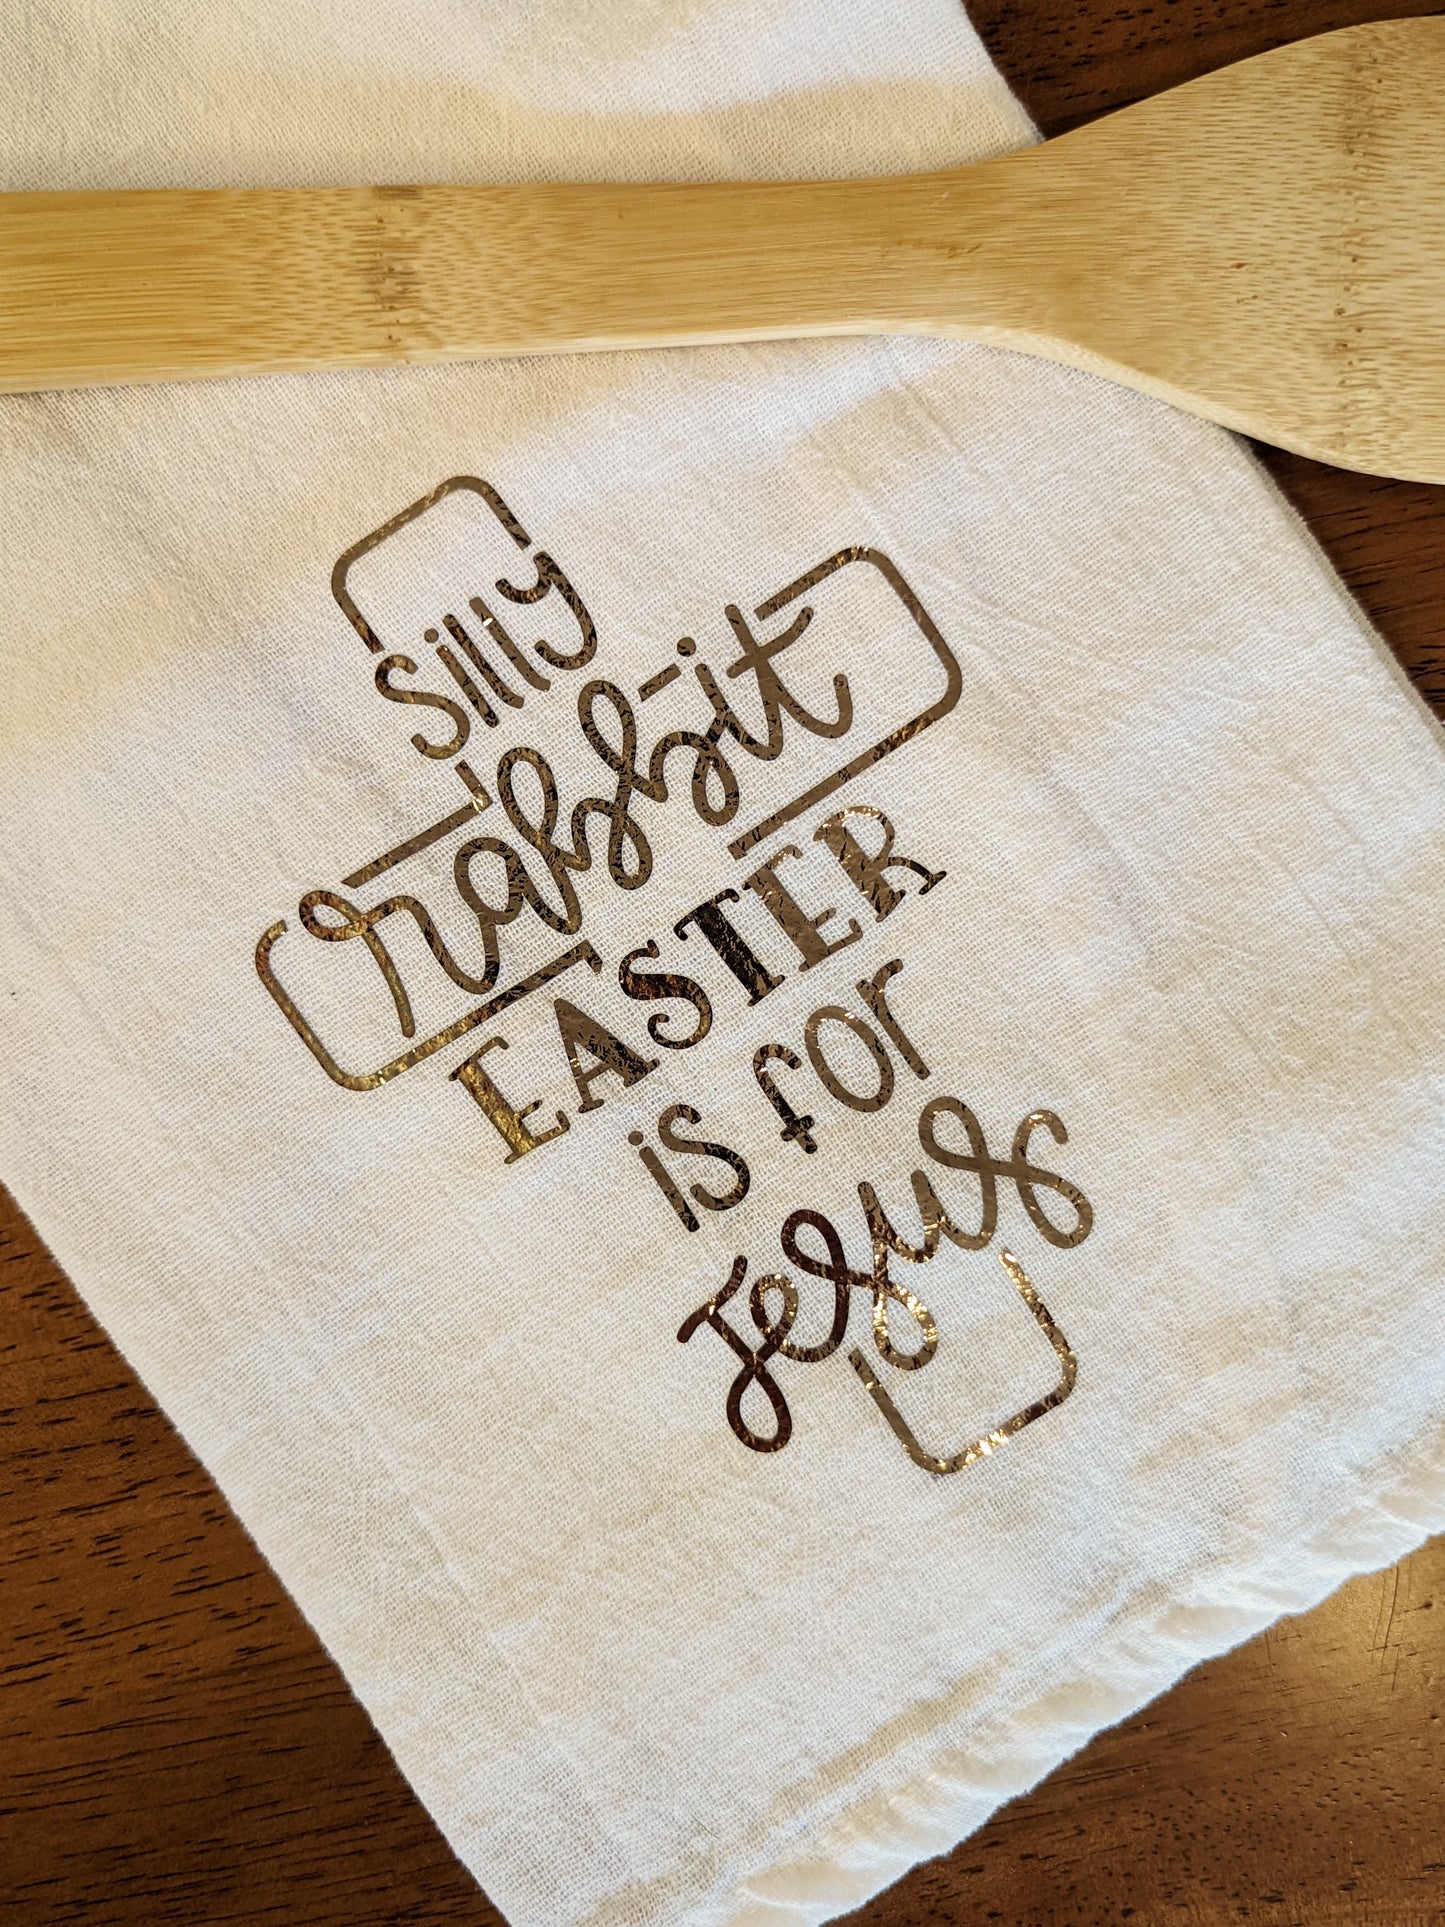 silly
rabbit
EASTER
is for
Jesus